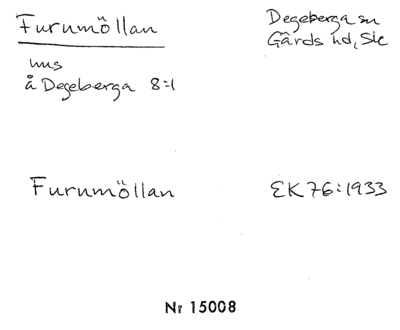 Furumöllan
Degeberga sn
Gärds hd, Skå
hus
å Degeberga 8:1
Furumöllan
EK 76:1933
Nr 15008